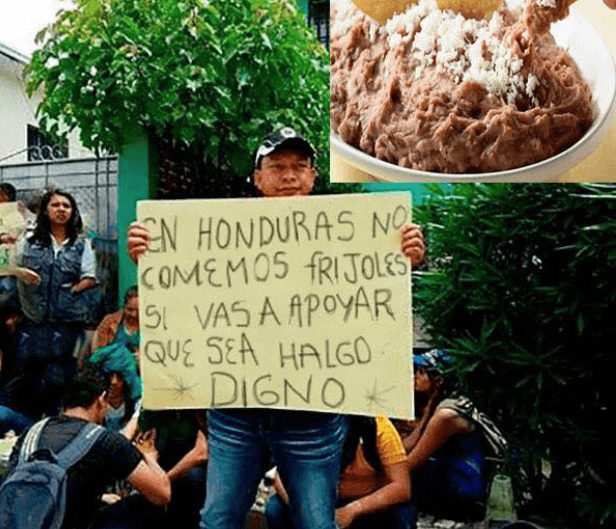 EN HONDURAS NO
COMEMOS FRIJOLES
SI VAS A APOYAR
QUE SEA HALGO
DIGNO